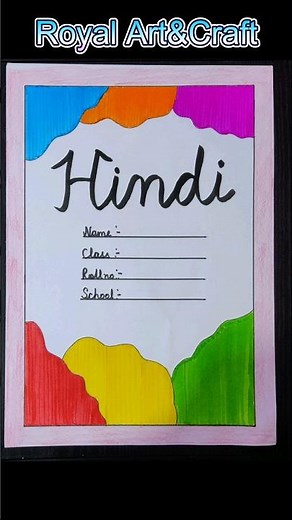 Royal Art&Craft
Hindi
Name :-
Class :-
Rollno :-
School :-